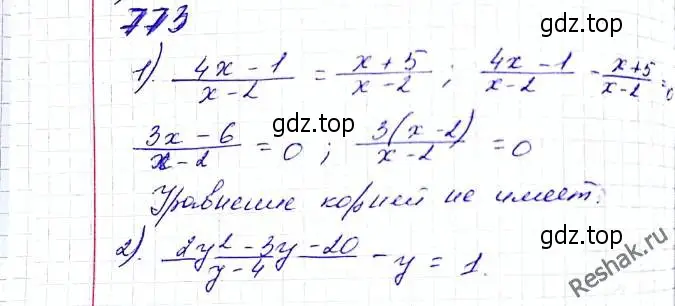 773
1). (4x - 1)/(x - 2) = (x + 5)/(x - 2) ; (4x - 1)/(x - 2) - (x + 5)/(x - 2) = 0
(3x - 6)/(x - 2) = 0 ; 3(x - 2)/(x - 2) = 0
Уравнение корней не имеет.
2). (2y² - 3y - 20)/(y - 4) - y = 1.
gdz.top
gdz.top
gdz.top
gdz.top
Reshak.ru